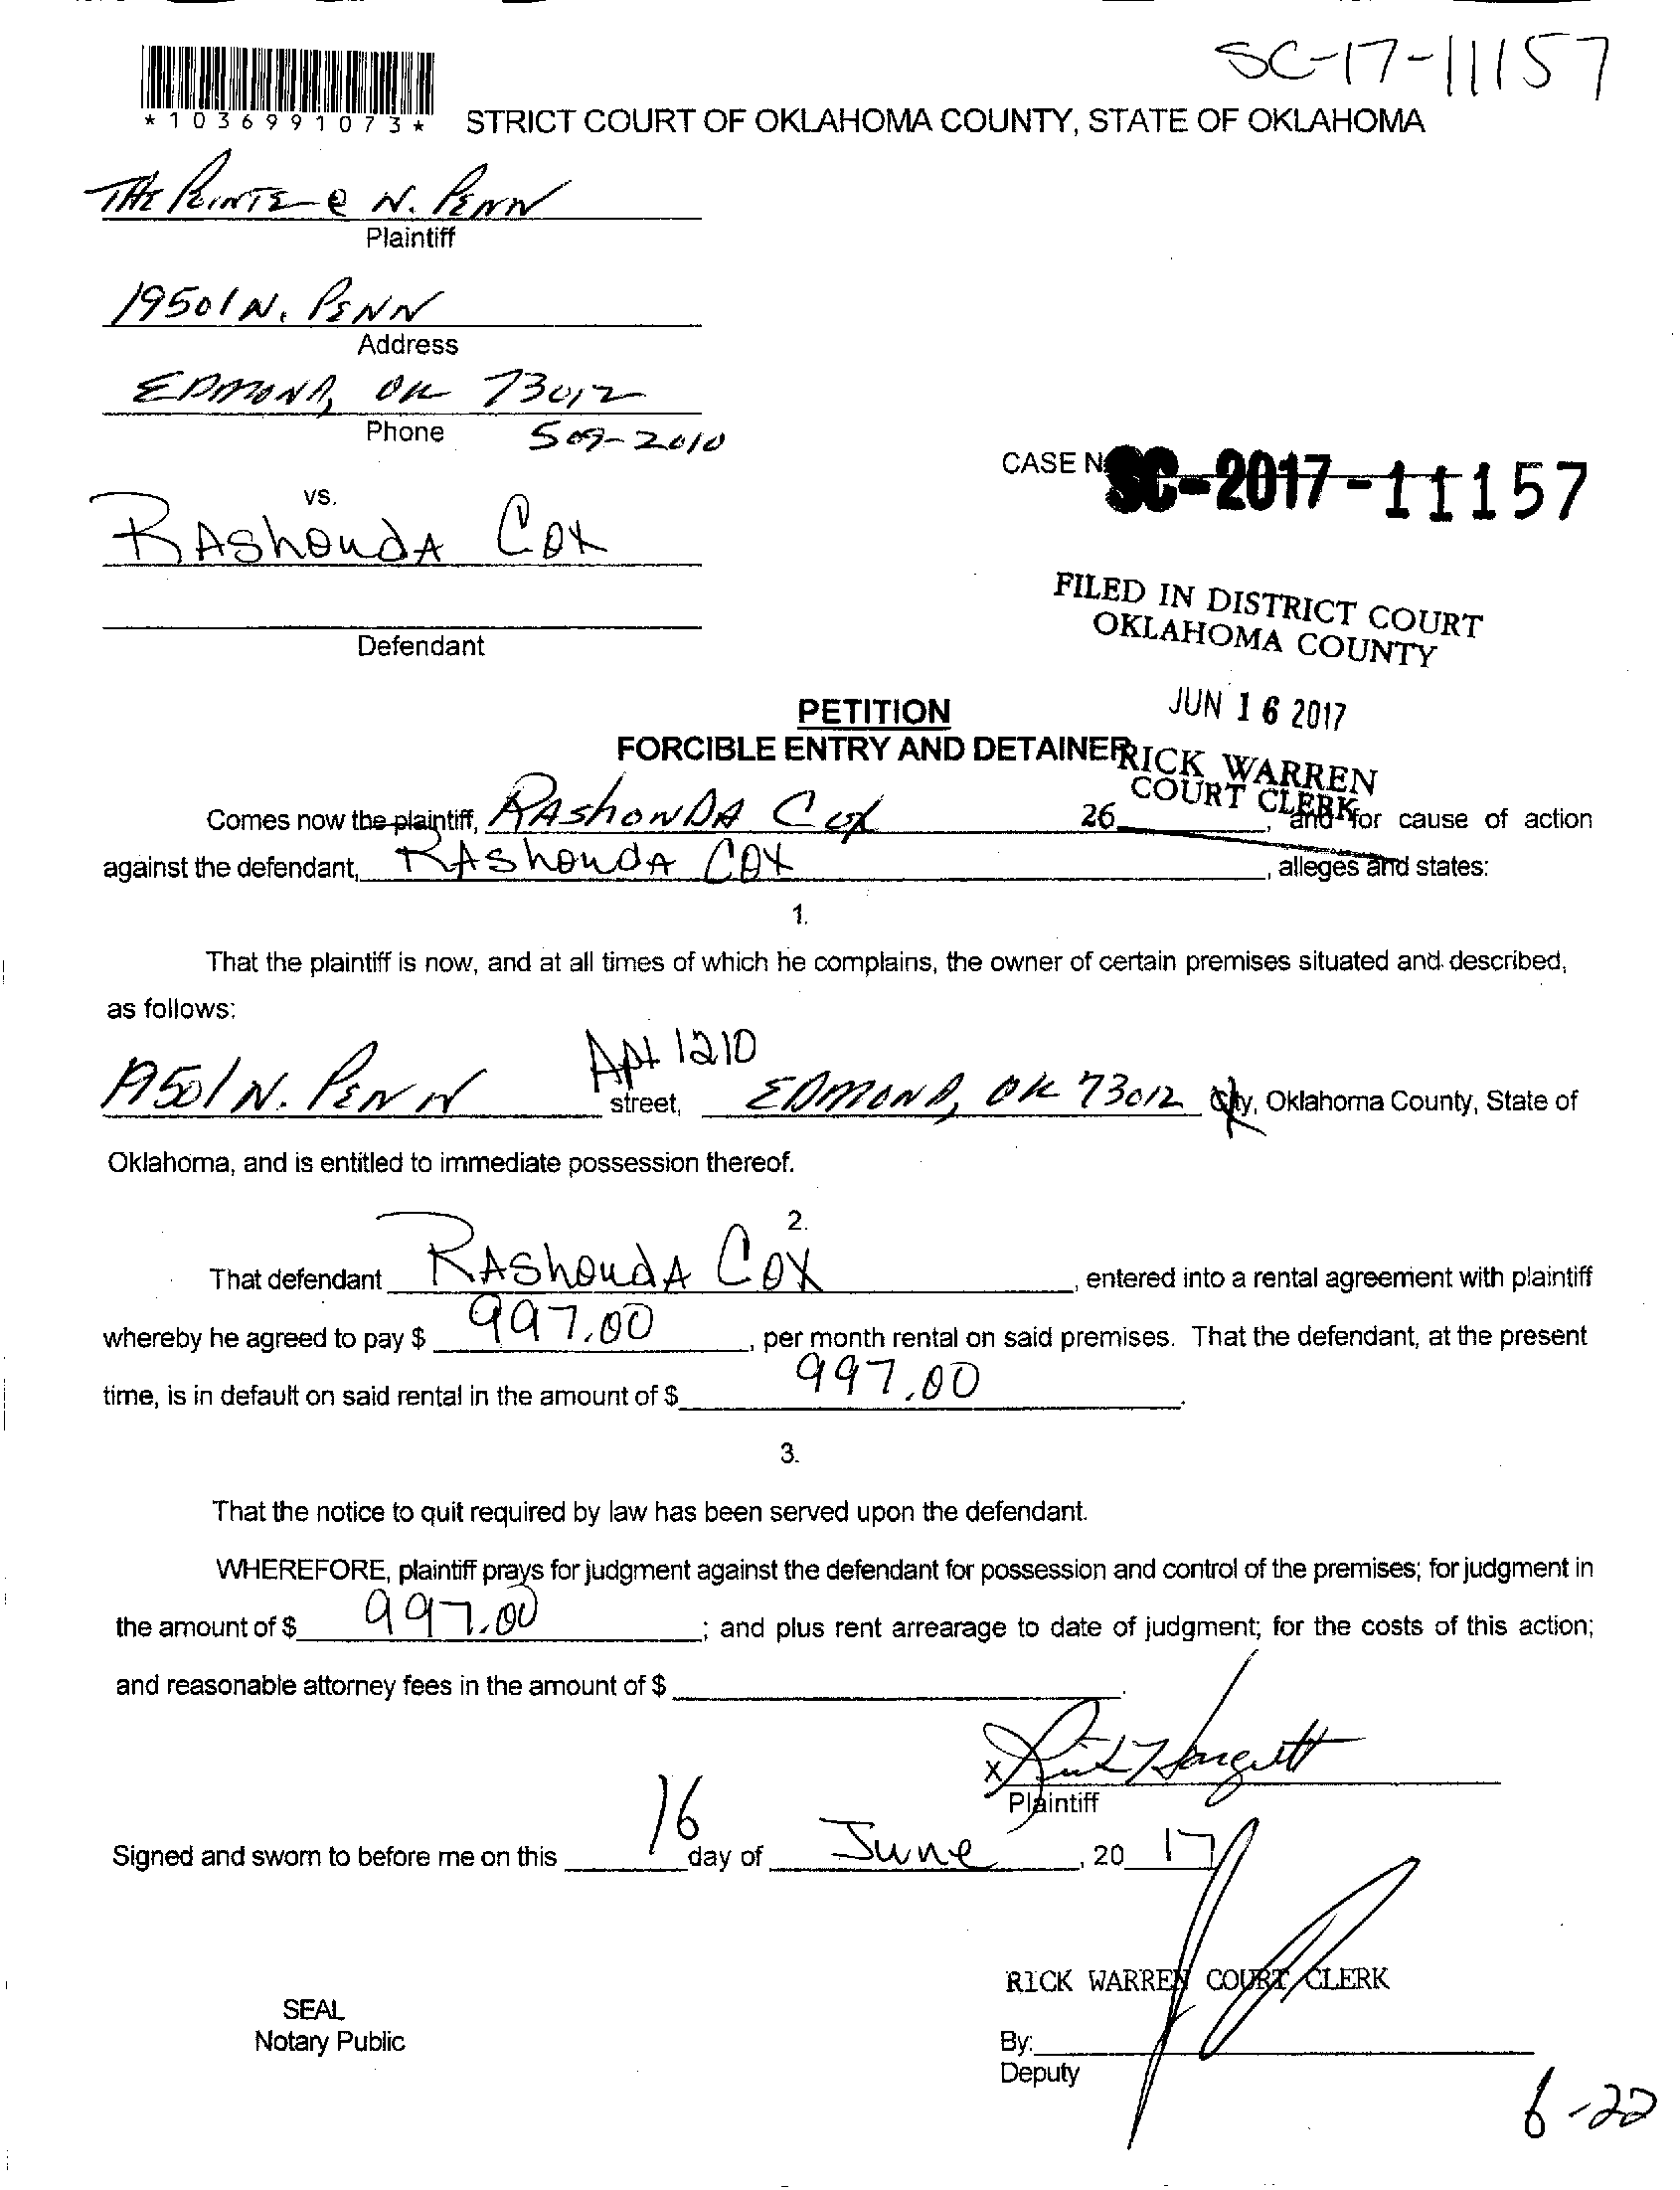 SC-17-11157
*1036991073*
STRICT COURT OF OKLAHOMA COUNTY, STATE OF OKLAHOMA
THE POINTE @ N. PENN
Plaintiff
19501 N. PENN
Address
EDMOND, OK 73012
Phone 509-2010
CASE N SC-2017-11157
vs.
RAshondA Cox
Defendant
FILED IN DISTRICT COURT
OKLAHOMA COUNTY
JUN 16 2017
RICK WARREN
COURT CLERK
PETITION
FORCIBLE ENTRY AND DETAINER
Comes now the plaintiff, RAshonDA Cox 26 , and for cause of action
against the defendant, RAshondA Cox , alleges and states:
1.
That the plaintiff is now, and at all times of which he complains, the owner of certain premises situated and described,
as follows:
Apt 1210
19501 N. PENN street, EDMOND, OK 73012 City, Oklahoma County, State of
Oklahoma, and is entitled to immediate possession thereof.
2.
That defendant RAshondA Cox , entered into a rental agreement with plaintiff
whereby he agreed to pay $ 997.00 , per month rental on said premises. That the defendant, at the present
time, is in default on said rental in the amount of $ 997.00 .
3.
That the notice to quit required by law has been served upon the defendant.
WHEREFORE, plaintiff prays for judgment against the defendant for possession and control of the premises; for judgment in
the amount of $ 997.00 ; and plus rent arrearage to date of judgment; for the costs of this action;
and reasonable attorney fees in the amount of $ .
X
Plaintiff
Signed and sworn to before me on this 16 day of June , 20 17
RICK WARREN COURT CLERK
SEAL
Notary Public
By:
Deputy
6-22